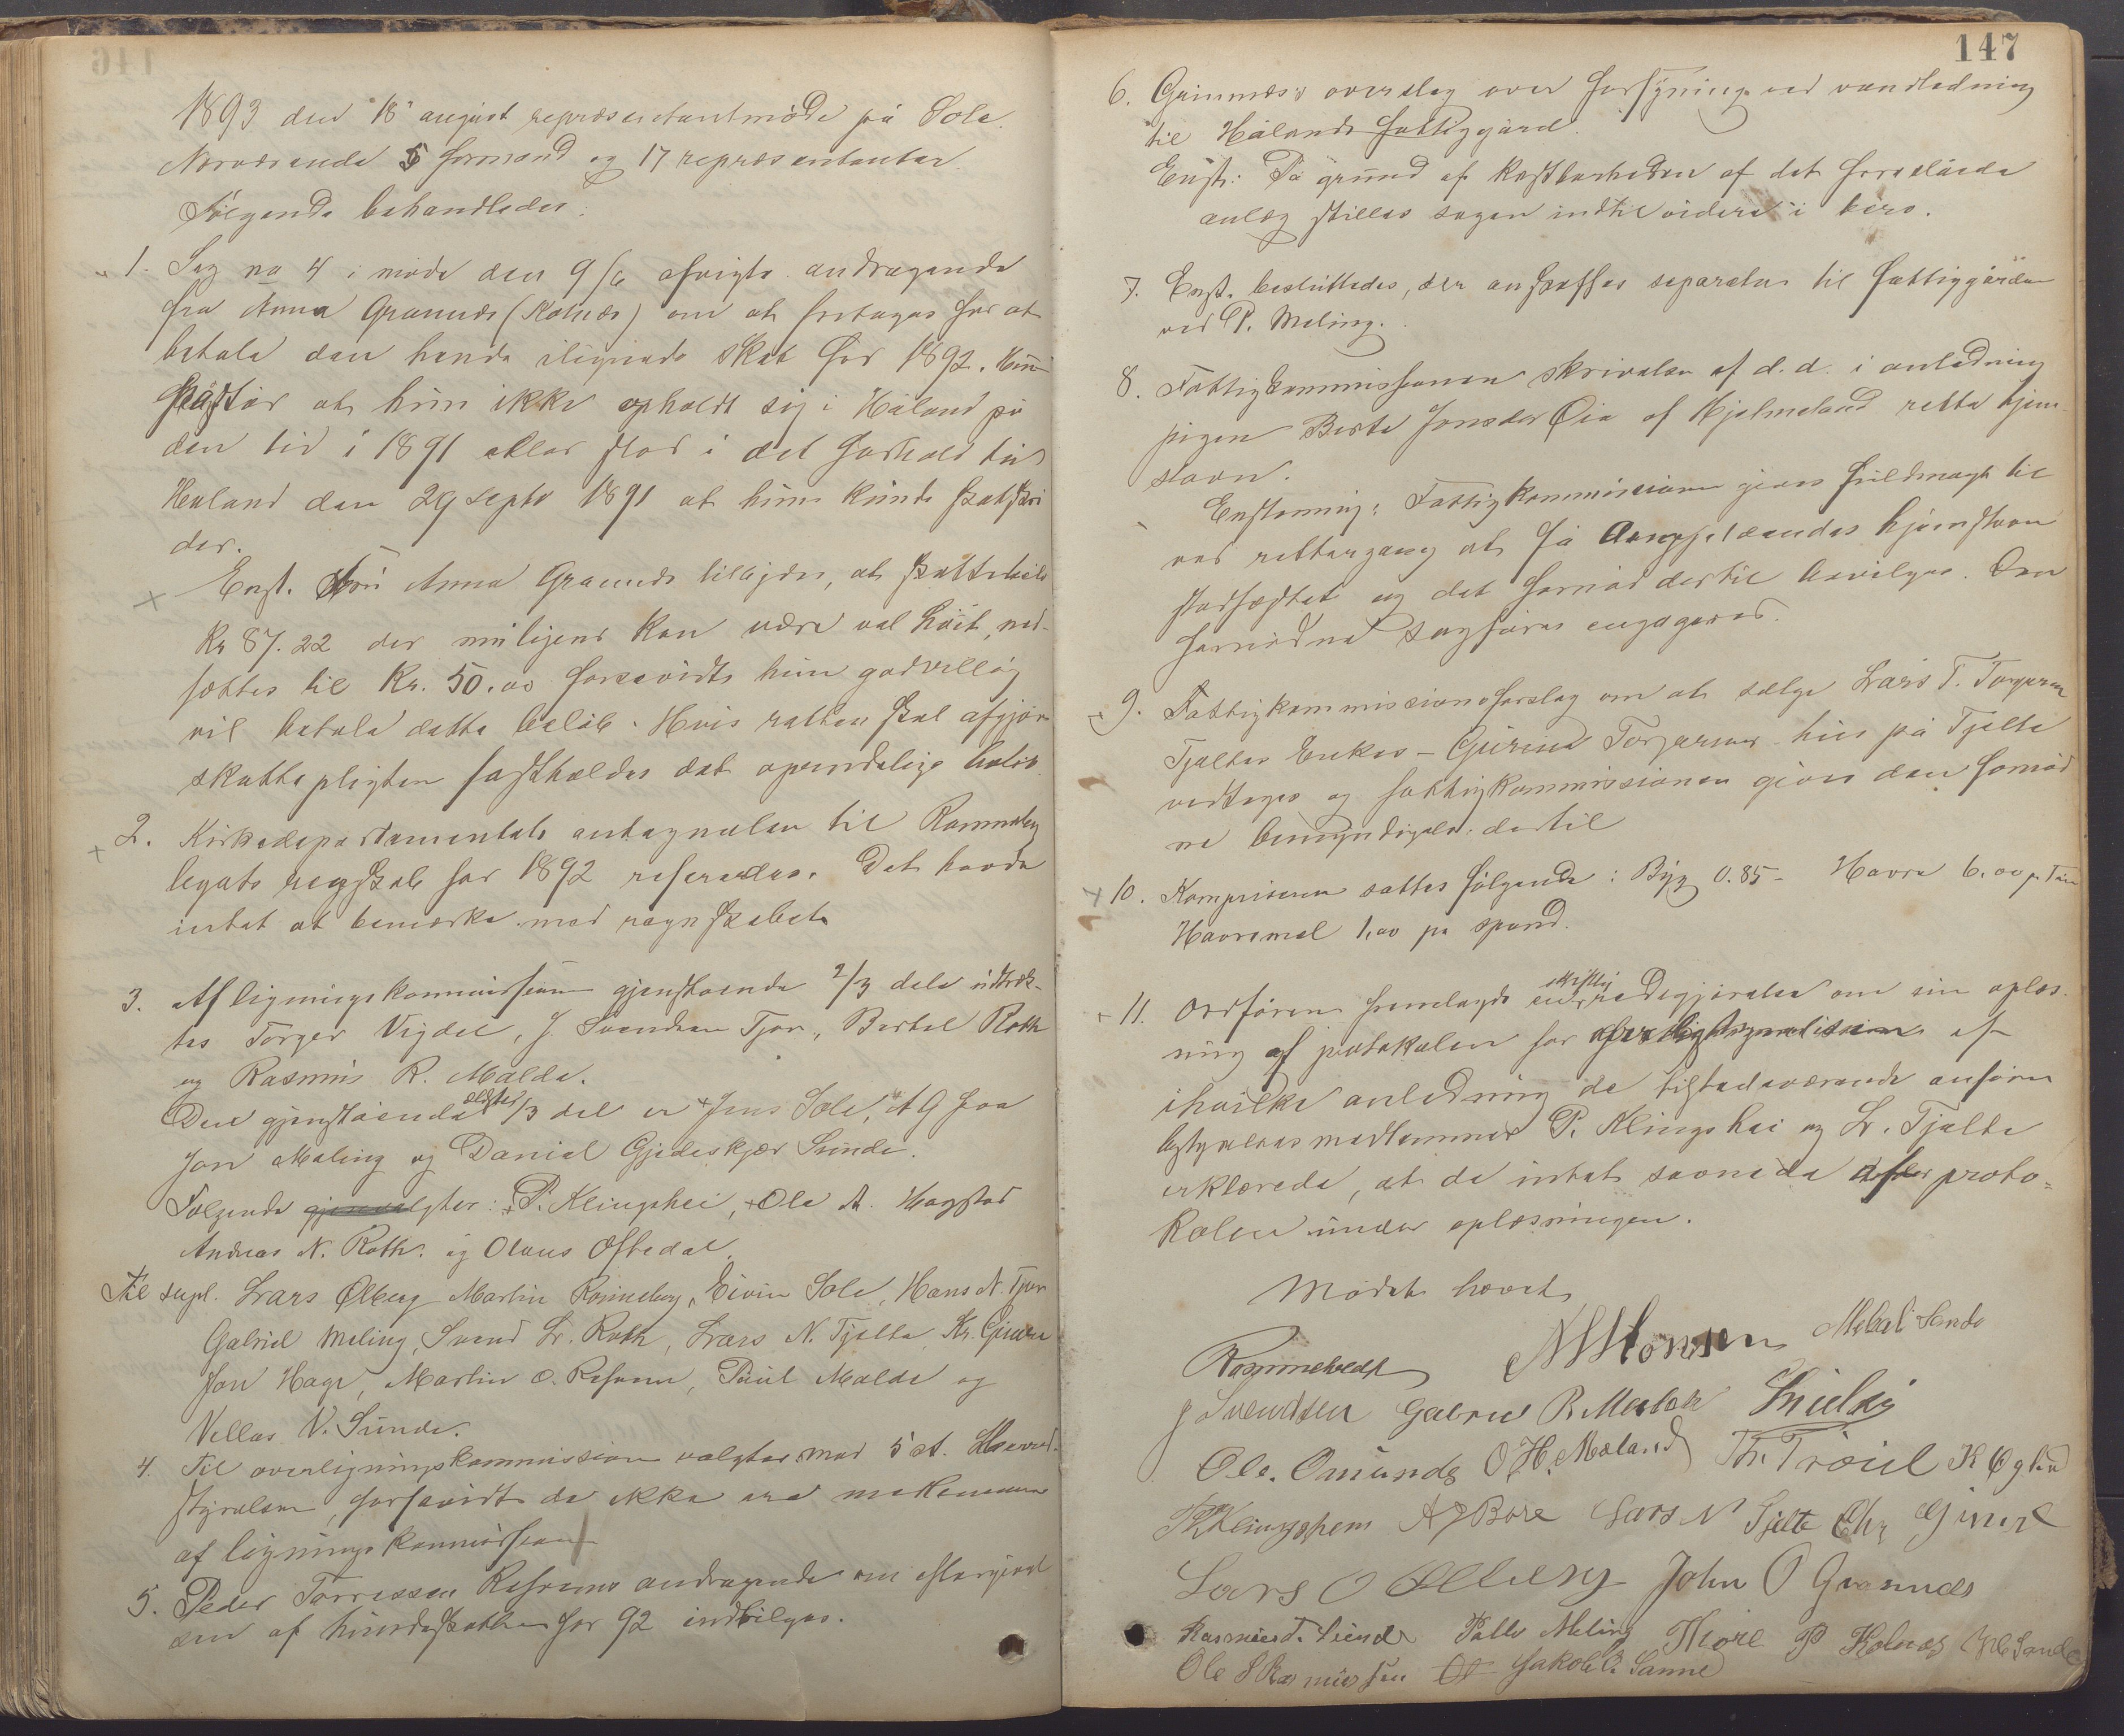 1893 den 18 august repræsentantmøde på Sole.
Nærværende 5 formænd og 17 repræsentanter.
Følgende behandledes:
1. Sag no 4 i møde den 9/6 afvigte andragende
fra Anna Grannes (Kolnæs) om at fritages for at
betale den hende ilignede skat for 1892. Hun
påstår at hun ikke opholdt sig i Håland på
den tid i 1891 eller stod i det forhold til
Haaland den 29 septb 1891 at hun kunde
der.
Enst. Fru Anna Grannes tilbydes, at
Kr 87.22 der muligens kan være vel høit, ned-
sættes til Kr. 50.00 forsavidt hun godvillig
vil betale dette beløb. Hvis retten skal afgjøre
skattepligten fastholdes det oprindelige beløb.
2. Kirkedepartementets antegnelser til
legats regnskab for 1892 refereredes. Det havde
intet at bemærke med regnskabet.
3. Af ligningskommissionen gjenstaaende 2/3 dele udtræk-
tes Torger Vigdel, J. Svendsen Tjor, Bertel Roth
og Rasmus R. Malde.
Den gjenstående ældste 1/3 del er Jens Sole, A G Joa
Jon Meling og Daniel Gjedeskjær Sunde.
Følgende gjenvalgtes: P. Klingshei, Ole A. Hagstad
Andreas N. Roth. og Olaus Oftedal.
Til supl. Lars Ølberg Martin Rønneberg, Eivin Sole, Hans N. Tjor
Gabriel Meling, Svend L. Roth, Lars N. Tjelta, Kr. Gimre
Jon Haga, Martin O. Refsnes, Paul Malde og
Vellas V. Sunde.
4. Til overligningskommission valgtes med 5 st. Herreds-
styrelsen, forsavidt de ikke ere medlemmer
af ligningskommissionen
5. Peder Torressen Refsnes andragende om eftergivel
sen af hundeskatten for 92 indvilges.
147
6. Grannæs's overslag over forsyning ved vandledning
til Hålands fattiggård.
Enst: På grund af kostbarheden af det foreslåede
anlæg stilles sagen indtil videre i bero.
7. Enst. besluttedes, der anskaffes separator til fattiggården
ved P. Meling.
8. Fattigkommissionen skrivelse af d.d. i anledning
pigen Berte Jonsdtr Øie af Hjelmeland rette hjem-
stavn.
Enstemmig: Fattigkommissionen gives fuldmagt til
ved rettergang at få hjemstavn
stadfæstet og det fornødne dertil bevilges. Den
fornødne sagfører engageres.
9. Fattigkommissions forslag om at sælge Lars T. Torgersen
Tjeltas Enkes - Gurine Torgersens hus på Tjelta
vedtages og fattigkommissionen gives den fornød
ne bemyndigelse dertil
10. Kornpriserne sattes følgende: Byg 0.85 - Havre 6.00 p. Tøn
Havremel 1,00 pr spand.
11. Ordføren fremlagde en skriftlig redegjørelse om sin oplæs-
ning af protokolen for
ihvilke anledning de tilstedeværende anførte
medlemmer P. Klingshei og L. Tjelta
erklærede, at de intet savnede efter proto-
kolen under oplæsningen.
Mødet hævet
Rommetvedt Mikal Sande
J Svendsen Gabriel R Malde
Ole. Omunds O H. Mæland Th. Træiel K Øglænd
P Klingshem A G Bore Lars N Tjelta Chr Gimre
Lars O Ølberg John O Grannes
Rasmus T. Sunde Palle Meling Thore P Kolnæs Ole Sande
Ole S Rasmussen Jakob P. Sømme